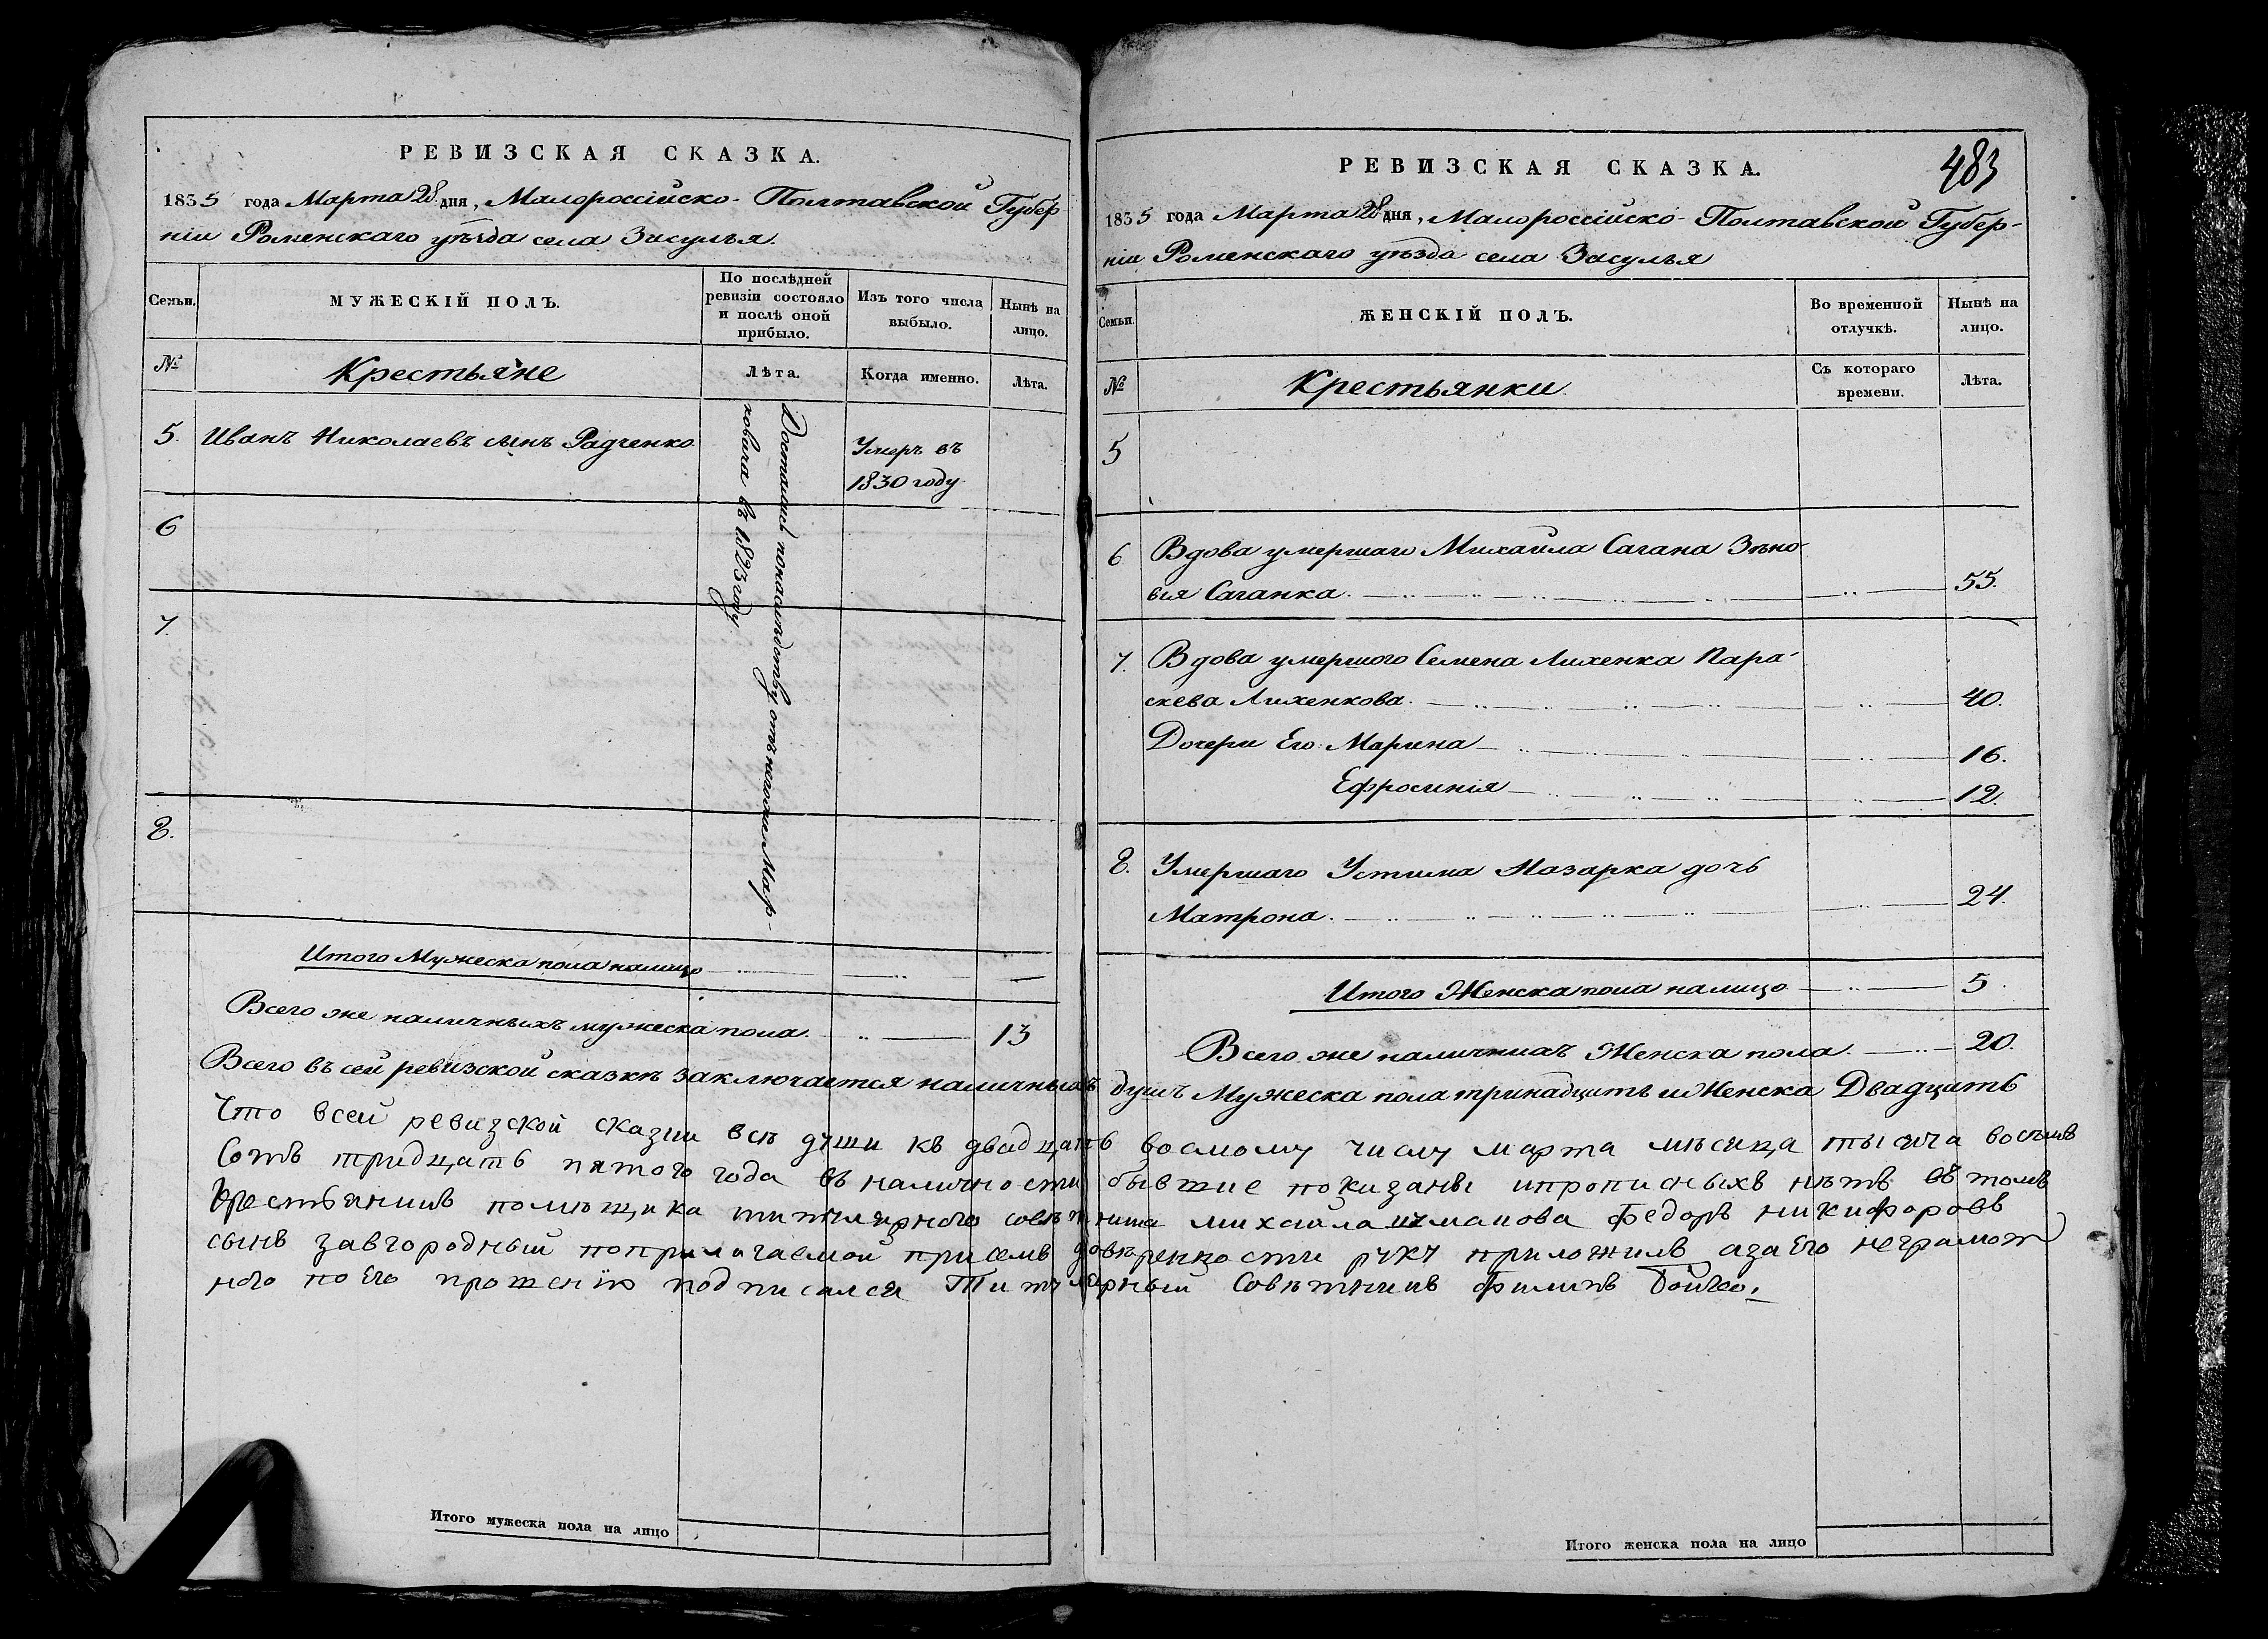 РЕВИЗСКАЯ СКАЗКА.
1835 года Марта 28 дня, Малороссійско-Полтавской Губер
ніи Роменскаго уѣзда села Засулья.
Семьи.
МУЖЕСКІЙ ПОЛЪ.
По послѣдней
ревизіи состояло
и послѣ оной
прибыло.
Изъ того числа
выбыло.
Нынѣ на
лицо.
№
Крестьяне
Лѣта.
Когда именно.
Лѣта.
5. Иванъ Николаевъ сынъ Радченко
Умеръ въ
1830 году
Достались понаслѣдству отъ Мар-
ковича въ 1823 году
6
7.
8.
Итого Мужеска пола налицо —
Всего же наличныхъ мужеска пола. 13
РЕВИЗСКАЯ СКАЗКА.
483
1835 года Марта 28 дня, Малороссійско-Полтавской Губер-
ніи Роменскаго уѣзда села Засулья
Семьи.
ЖЕНСКІЙ ПОЛЪ.
Во временной
отлучкѣ.
Нынѣ на
лицо.
№
Крестьянки.
Съ котораго
времени.
Лѣта.
5
6 Вдова умершаго Михаила Сагана Зѣно-
вія Саганка. 55.
7. Вдова умершого Семена Лихенка Пара-
скева Лихенкова. 40.
Дочери Его Марина 16.
Ефросинія 12.
8. Умершаго Устима Назарка дочь
Матрона. 24.
Итого Женска пола налицо 5.
Всего же наличныхъ Женска пола. 20.
Всего въ сей ревизской сказкѣ заключается наличныхъ душъ Мужеска пола тринадцать и Женска Двадцать
Что всей ревизской сказки всѣ души къ двадцать восмому числу марта мѣсяца тысяча восемъ
Сотъ тридцать пятого года въ наличности бывшие показаны ипрописныхъ нѣтъ въ томъ
крестянинъ помѣщика титулярного совѣтника михайла Федоръ никифоровъ
сынъ завгородный поприлагаемой присемъ довѣренности руку приложилъ азаего неграмот
ного по его прошенію подписался Титулярный Совѣтникъ Филипъ Бойко.
Итого мужеска пола на лицо
Итого женска пола на лицо